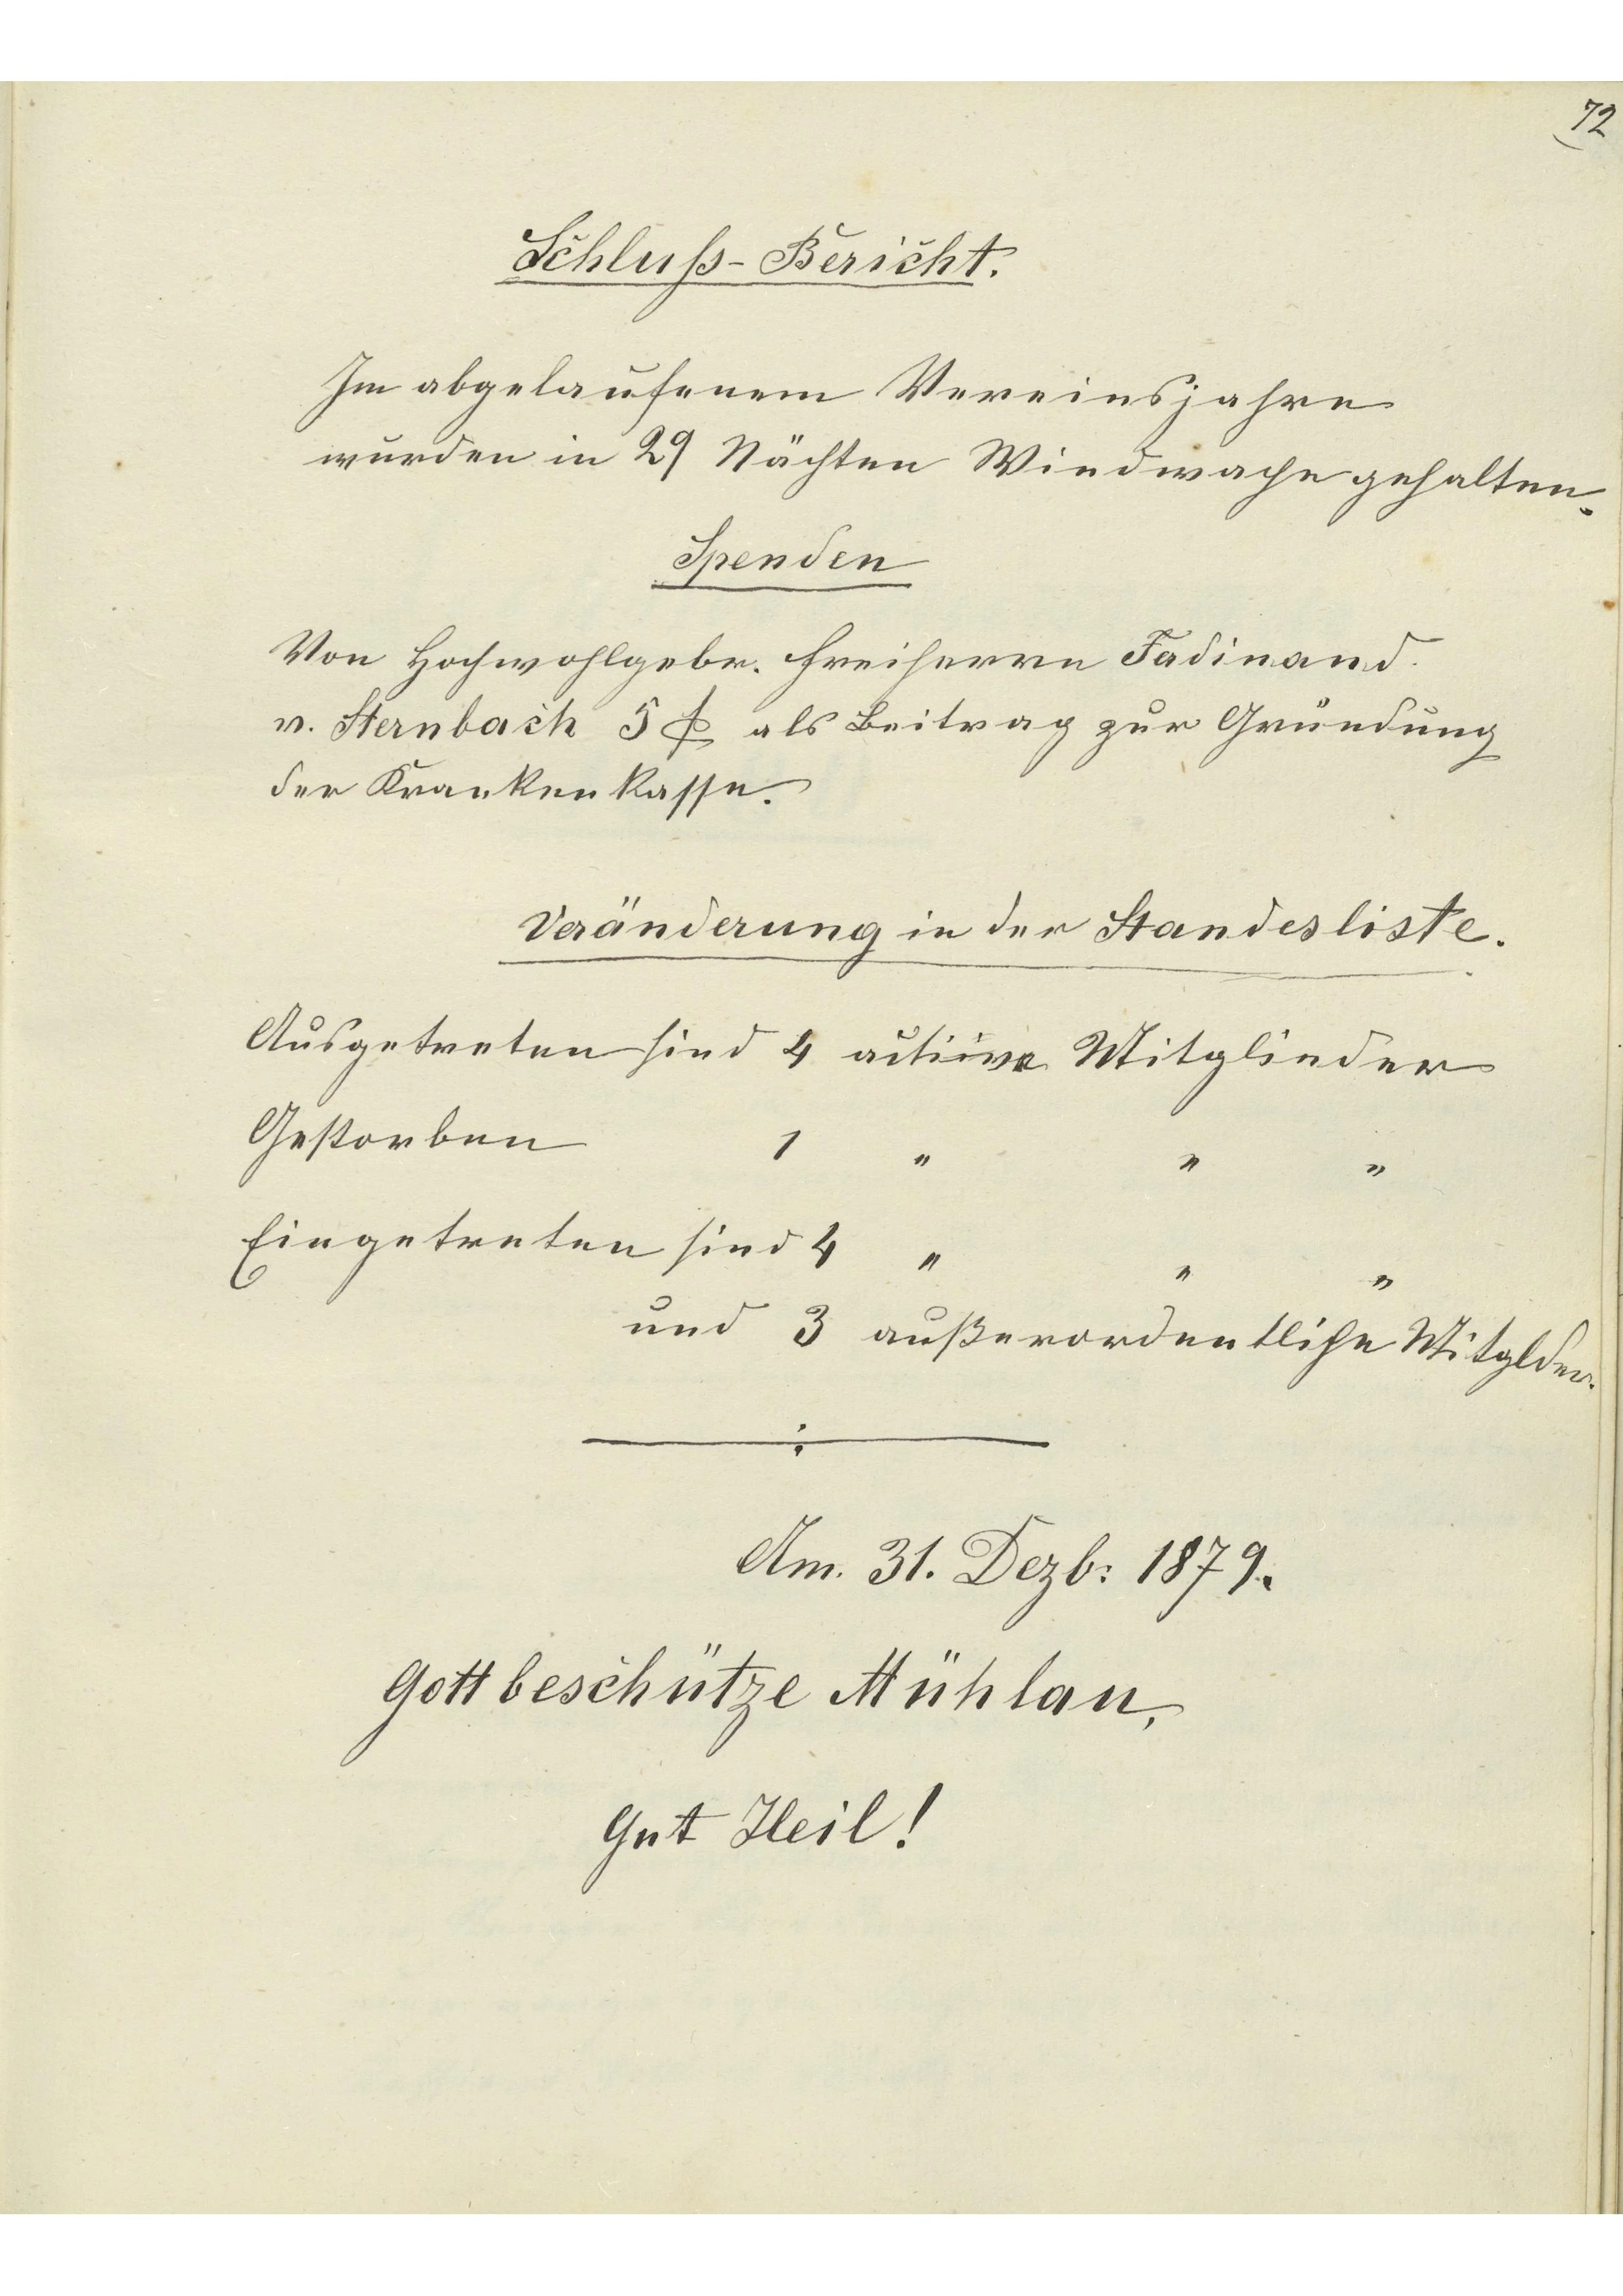 72
Schluß-Bericht.
Im abgelaufenem Vereinsjahre
wurden in 29 Nächten Windwache gehalten.
Spenden
Von Hochwohlgebr. Freiherrn Fadinand
v. Sternbach 5 f als Beitrag zur Gründung
der Krankenkasse.
Veränderung in der Standesliste.
Ausgetreten sind 4 active Mitglieder
Gestorben 1 " " "
Eingetreten sind 4 " " "
und 3 außerordentliche Mitglder.
Am. 31. Dezb: 1879.
Gott beschütze Mühlau,
Gut Heil!